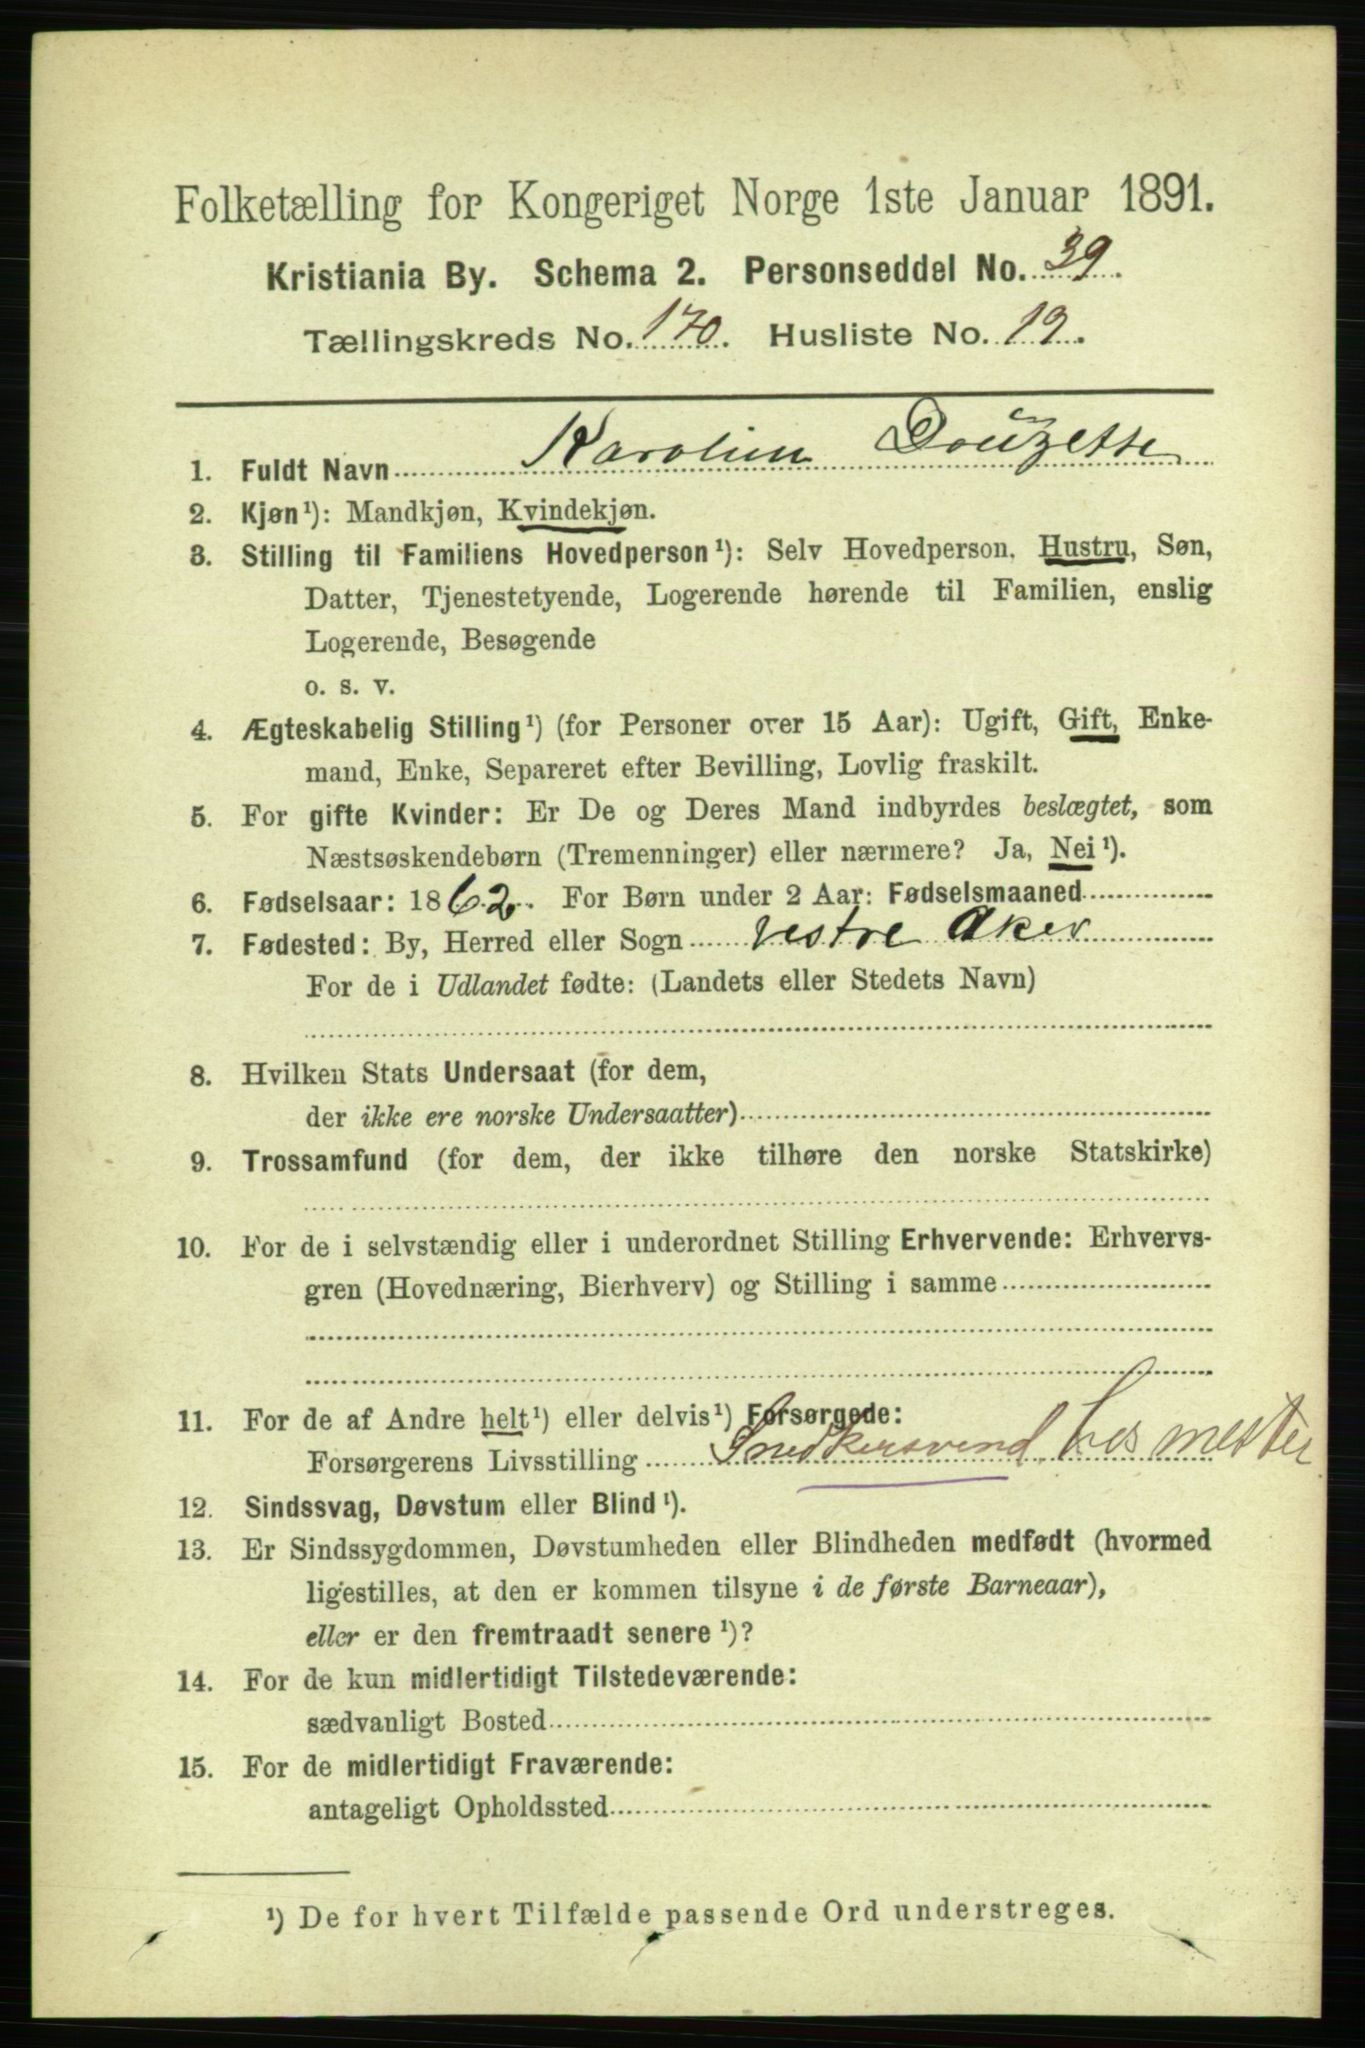 Folketælling for Kongeriget Norge 1ste Januar 1891.
Kristiania By. Schema 2. Personseddel No. 39.
Tællingskreds No. 170. Husliste No. 19.
1. Fuldt Navn Karolina Douzette
2. Kjøn¹): Mandkjøn, Kvindekjøn.
3. Stilling til Familiens Hovedperson¹): Selv Hovedperson, Hustru, Søn,
Datter, Tjenestetyende, Logerende hørende til Familien, enslig
Logerende, Besøgende
o. s. v.
4. Ægteskabelig Stilling¹) (for Personer over 15 Aar): Ugift, Gift, Enke-
mand, Enke, Separeret efter Bevilling, Lovlig fraskilt.
5. For gifte Kvinder: Er De og Deres Mand indbyrdes beslægtet, som
Næstsøskendebørn (Tremenninger) eller nærmere? Ja, Nei¹).
6. Fødselsaar: 1862. For Børn under 2 Aar: Fødselsmaaned
7. Fødested: By, Herred eller Sogn Vestre Aker
For de i Udlandet fødte: (Landets eller Stedets Navn)
8. Hvilken Stats Undersaat (for dem,
der ikke ere norske Undersaatter)
9. Trossamfund (for dem, der ikke tilhøre den norske Statskirke)
10. For de i selvstændig eller i underordnet Stilling Erhvervende: Erhvervs-
gren (Hovednæring, Bierhverv) og Stilling i samme
11. For de af Andre helt¹) eller delvis¹) Forsørgede:
Forsørgerens Livsstilling Snedkersvend, hos mester
12. Sindssvag, Døvstum eller Blind¹).
13. Er Sindssygdommen, Døvstumheden eller Blindheden medfødt (hvormed
ligestilles, at den er kommen tilsyne i de første Barneaar),
eller er den fremtraadt senere¹)?
14. For de kun midlertidigt Tilstedeværende:
sædvanligt Bosted
15. For de midlertidigt Fraværende:
antageligt Opholdssted
¹) De for hvert Tilfælde passende Ord understreges.